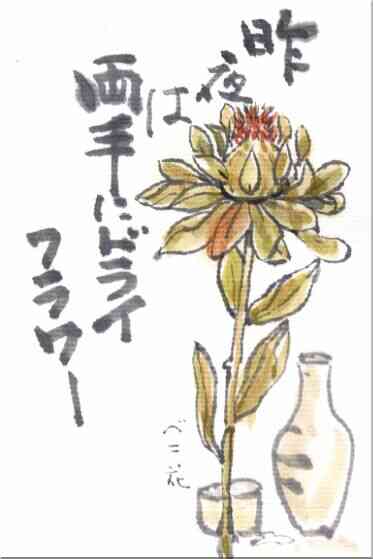 昨夜は
両手にドライ
フラワー
べニ花